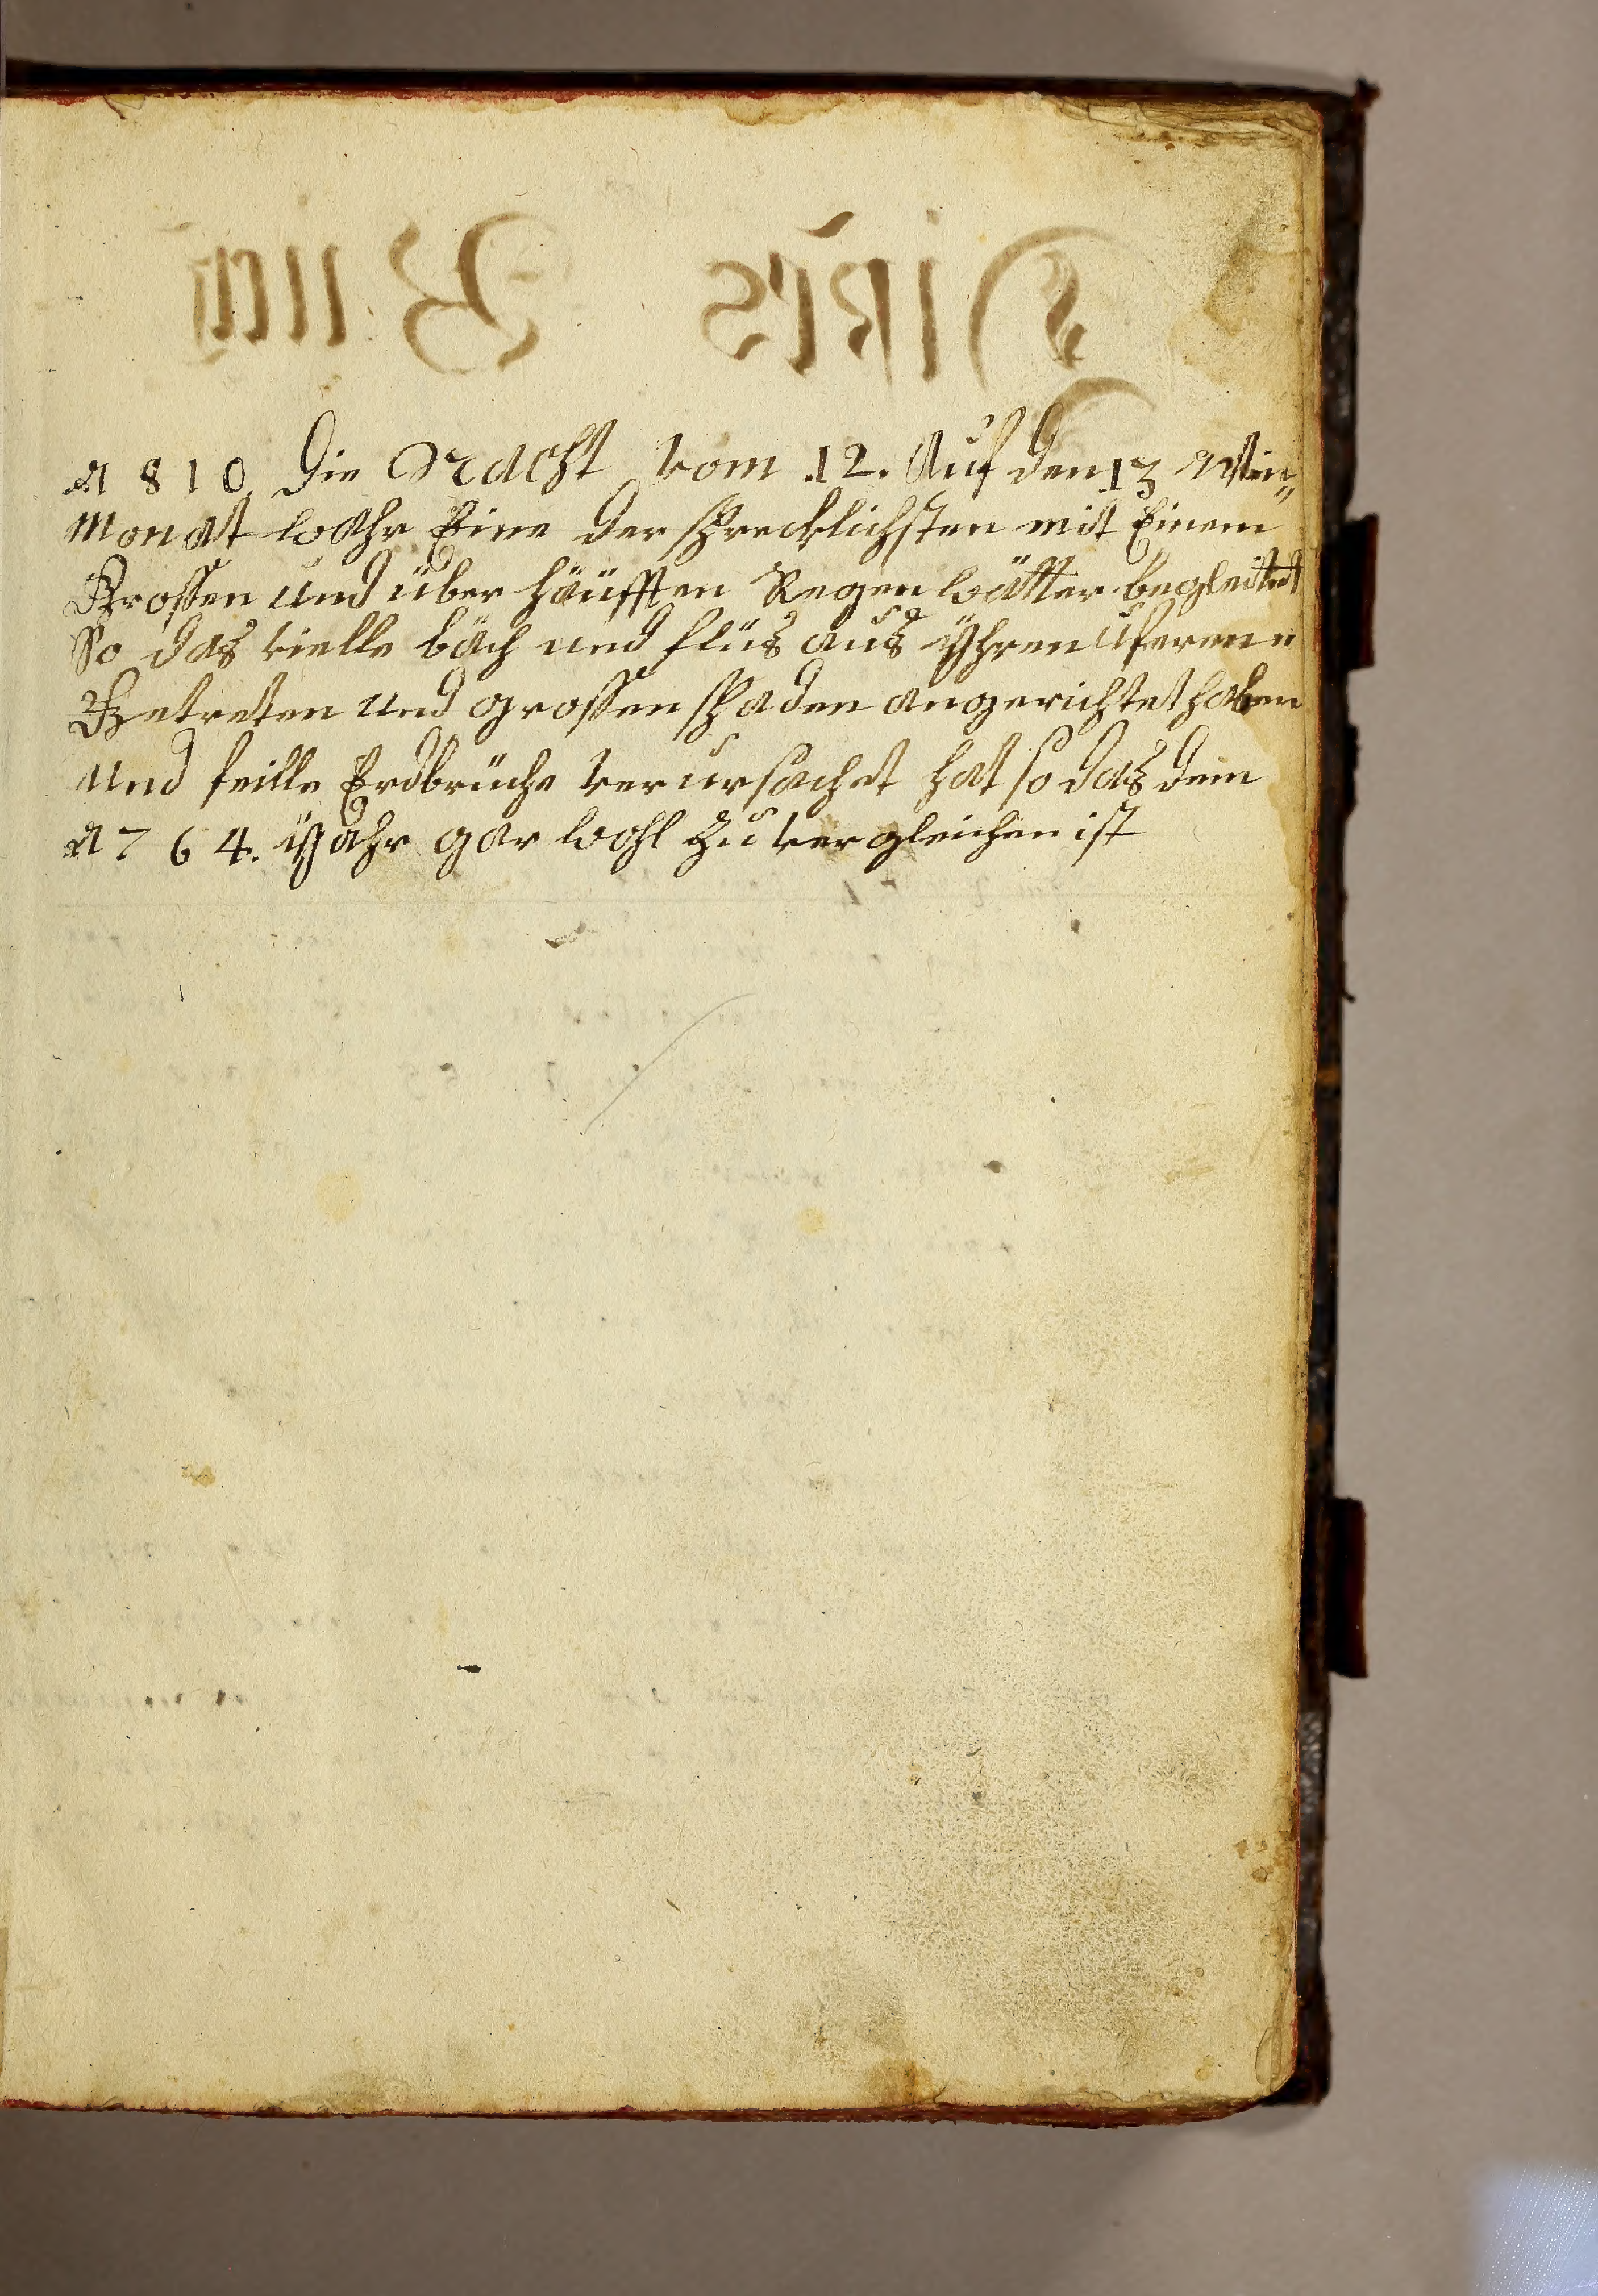 Dises Buch
1810. Die Nacht vom 12. Auf den 13 Win„
Monat wahr Eine der schrecklichsten mit Einem
Grossen und über häüfften Regen wätter begleitet
So das vielle bäch und flüs aus yhren Uferen
Getreten und grossen schaden angerichtet haben
Und feille Erdbrüche verursachet hat so das dem
1764. yahr gar wohl zu vergleichen ist